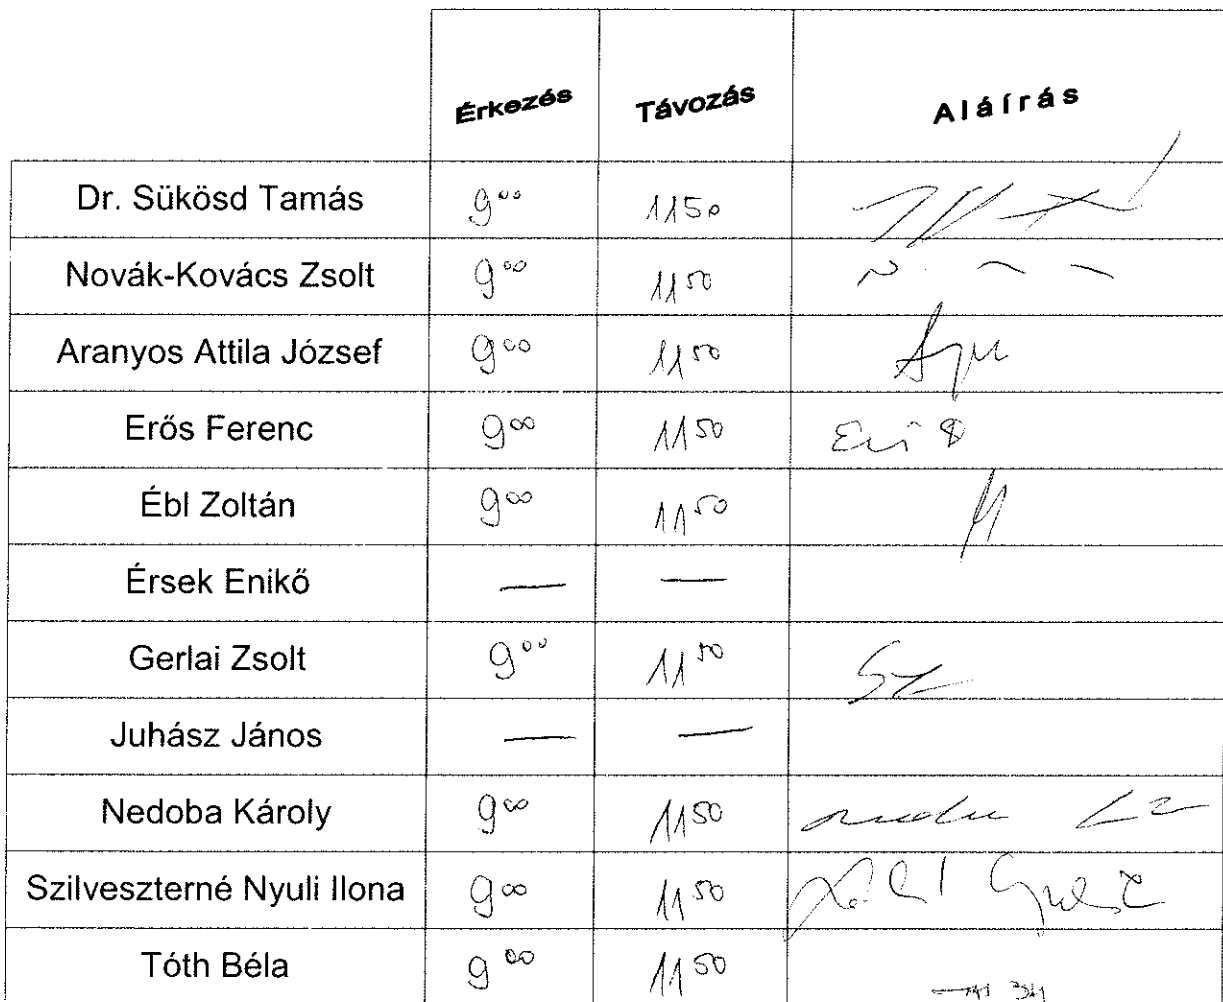 Érkezés Távozás Aláírás
Dr. Sükösd Tamás 9⁰⁰ 11⁵⁰
Novák-Kovács Zsolt 9⁰⁰ 11⁵⁰
Aranyos Attila József 9⁰⁰ 11⁵⁰
Erős Ferenc 9⁰⁰ 11⁵⁰
Ébl Zoltán 9⁰⁰ 11⁵⁰
Érsek Enikő — —
Gerlai Zsolt 9⁰⁰ 11⁵⁰
Juhász János — —
Nedoba Károly 9⁰⁰ 11⁵⁰
Szilveszterné Nyuli Ilona 9⁰⁰ 11⁵⁰
Tóth Béla 9⁰⁰ 11⁵⁰